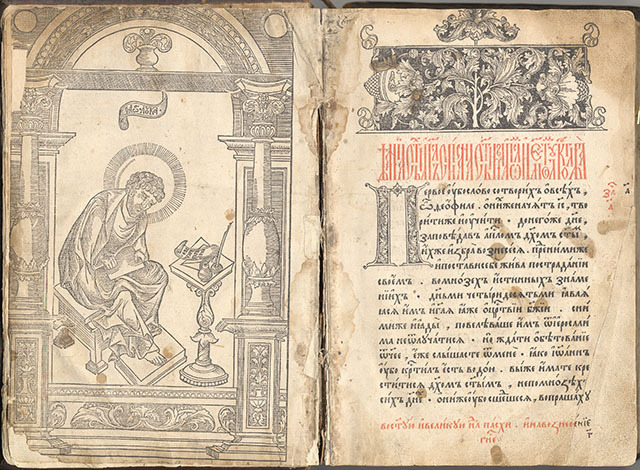 лꙋка
Первое оубо слово сотворихъ о всѣхъ,
ѽ ѳеофиле . о нихже начатъ іс, тво
рити же и оучити . донегоже дн҃е,
заповѣдавъ апⷭ҇лом дх҃омъ ст҃ы
ихже избра вознесесѧ . пред нимиже
и постави себе жива по страданїи
своемъ . во мнозѣхъ истинныхъ знаме
нїихъ . дньми четыридесѧтьми ꙗвлѧ
ꙗсѧ имъ и гл҃ѧ ꙗже о црⷭ҇твїи бж҃їи . с ни
миже и ꙗды, повелѣваше имъ ѿ иерⷭ҇али
ма не ѿлꙋчатисѧ . но ждати обѣтованїѧ
ѿчее, еже слышасте ѿ мене . ꙗко іѡаннъ
оубо крⷭ҇тилъ есть водою . вы же имате кре
ститисѧ дх҃омъ ст҃ымъ, не по мнозѣхъ
сихъ дн҃ехъ . они же оубо сшедшесѧ, вопрашахꙋ
в ст҃ꙋю и великꙋю нлⷣю пасхи . и на вознесенїе
гнⷭ҇е